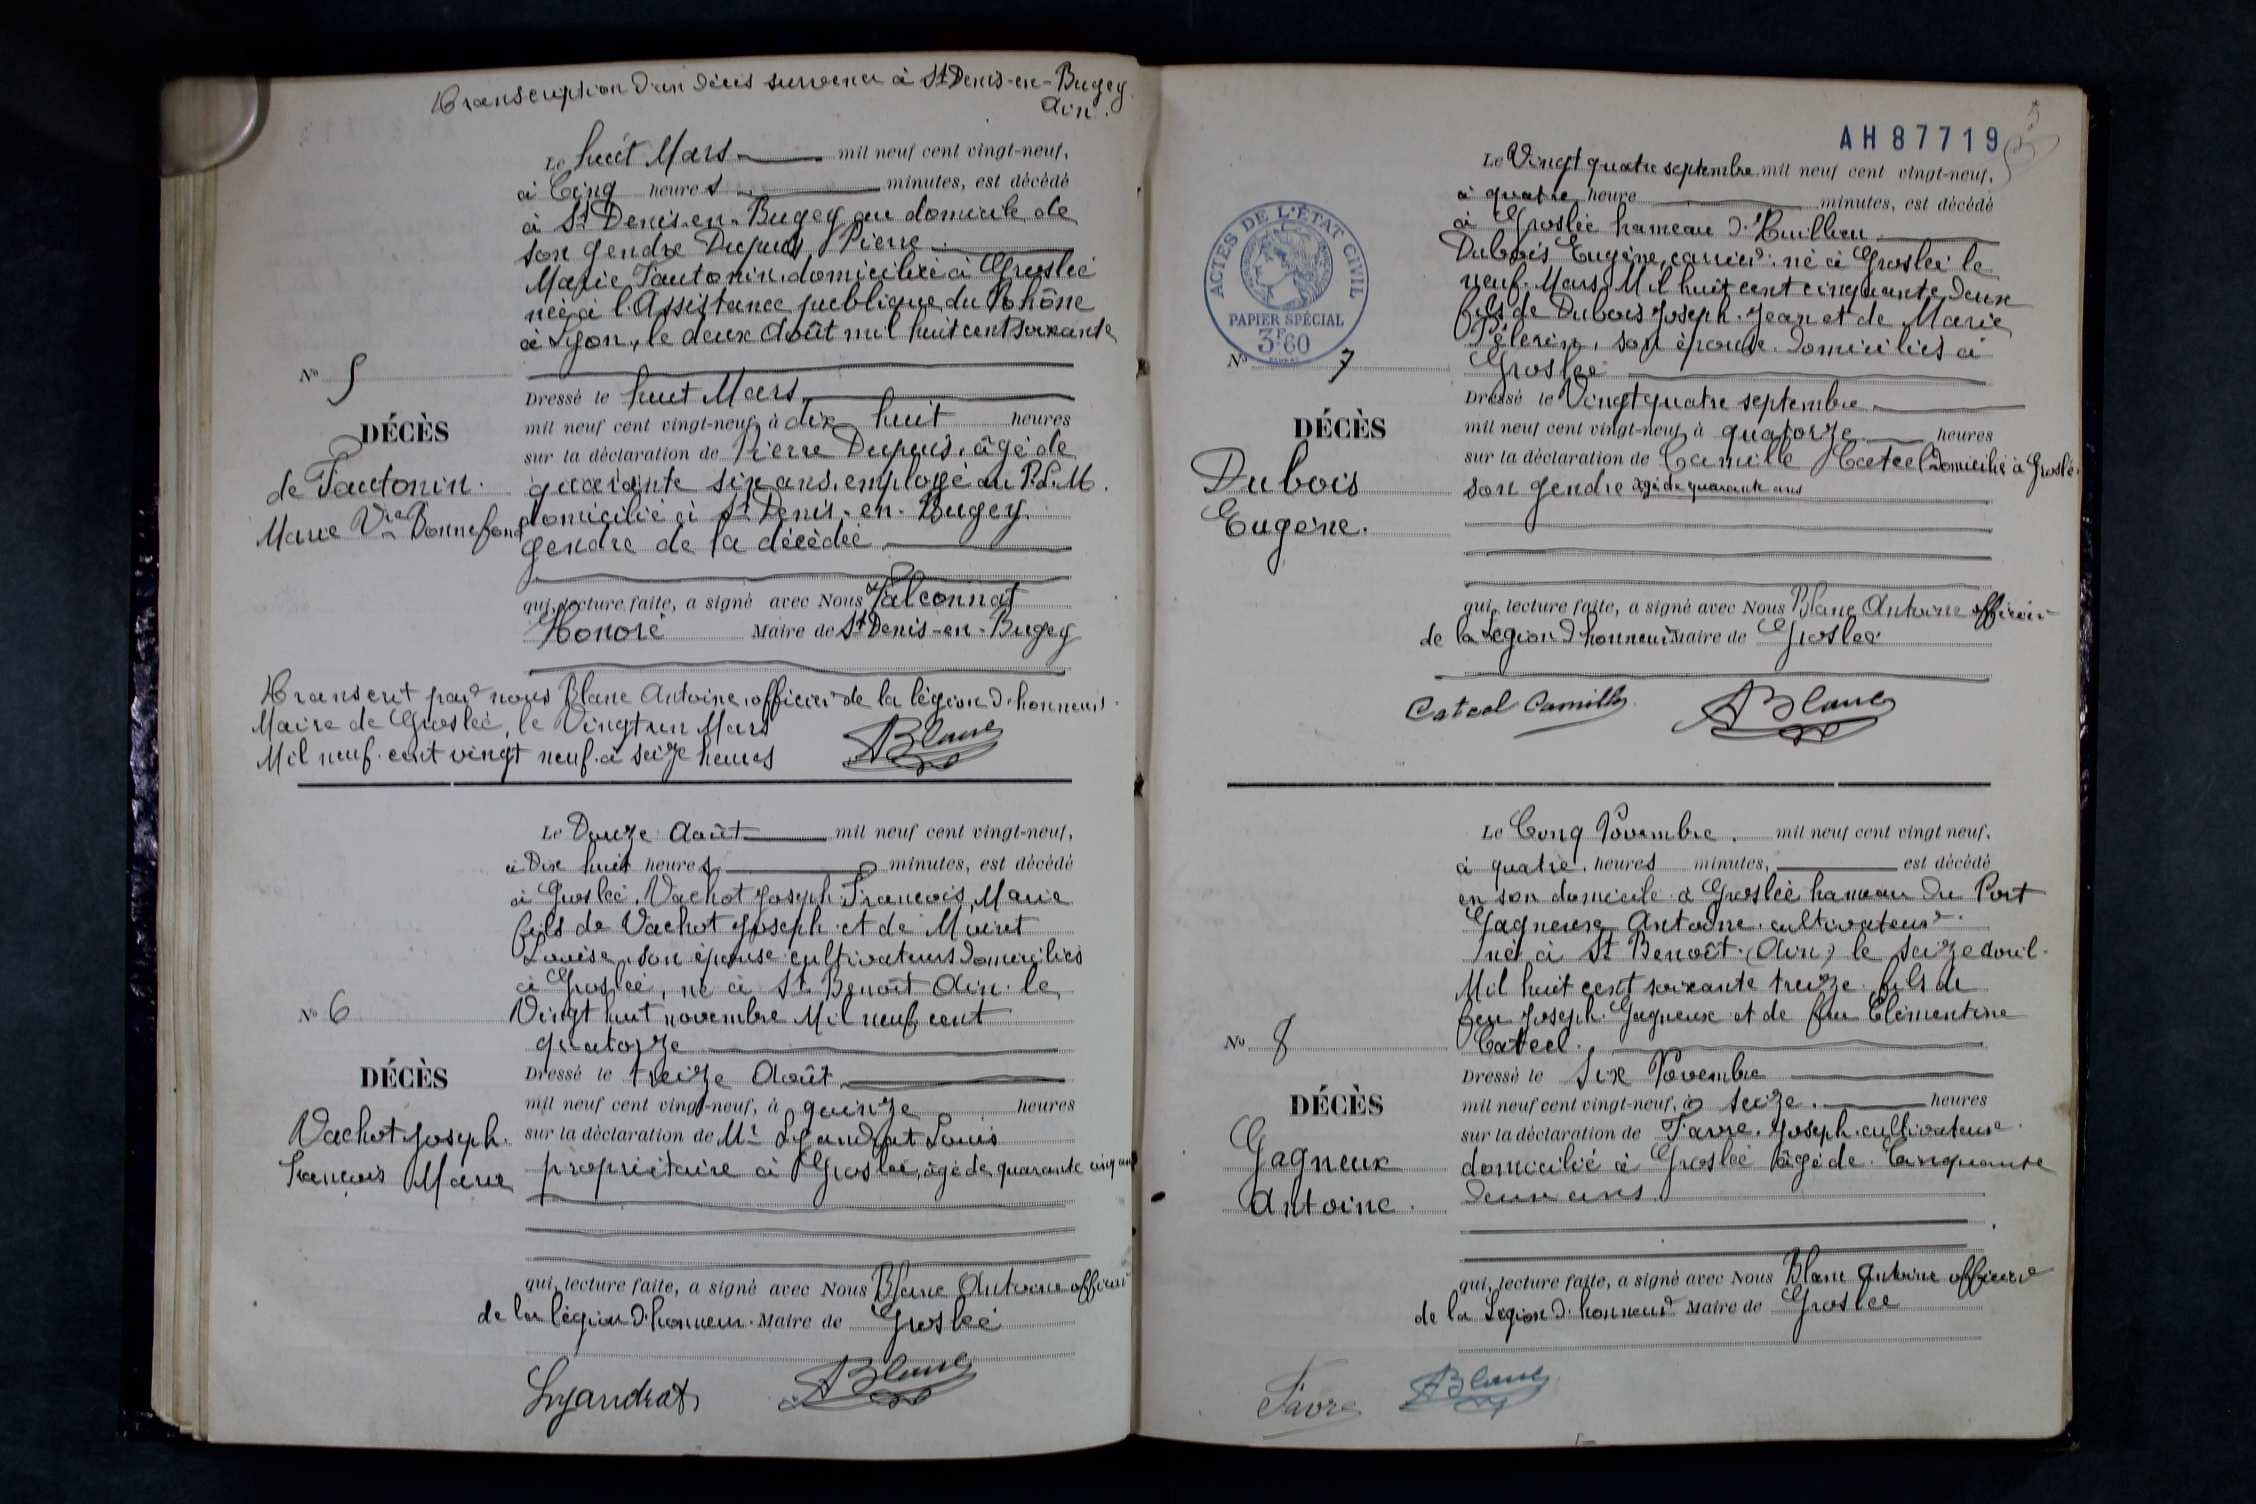 Transcription d'un décès survenu à St Denis-en-Bugey
Ain.
Le huit Mars mil neuf cent vingt-neuf,
à Cinq heures minutes, est décédé
à St Denis-en-Bugey au domicile de
son gendre Dupuis Pierre
Marie Fautonin domiciliée à Groslée
née à l'Assistance publique du Rhône
à Lyon, le deux Août mil huit cent soixante
No 5
Dressé le huit Mars
mil neuf cent vingt-neuf, à dix huit heures
DÉCÈS
sur la déclaration de Pierre Dupuis, âgé de
de Fautonin.
quarante six ans, employé au P.L.M.
Marie Vve Bonnefond
domicilié à St Denis-en-Bugey
gendre de la décédée
qui, lecture faite, a signé avec Nous Falconnat
Honoré Maire de St Denis-en-Bugey
Transcrit par nous Blanc Antoine, officier de la légion d'honneur
Maire de Groslée, le Vingt un Mars
Mil neuf cent vingt neuf à seize heures
ABlanc
Le Douze Août mil neuf cent vingt-neuf,
à Dix huit heures minutes, est décédé
à Groslée, Vachot Joseph François, Marie
fils de Vachot Joseph et de Muret
Louise, son épouse cultivateurs domiciliés
à Groslée, né à St Benoît Ain le
No 6
Vingt huit novembre Mil neuf cent
quatorze
DÉCÈS
Dressé le treize Août
mil neuf cent vingt-neuf, à quinze heures
Vachot Joseph.
sur la déclaration de Mr Lyandrat Louis
François Marie
propriétaire à Groslée, âgé de quarante cinq ans
qui, lecture faite, a signé avec Nous Blanc Antoine officier
de la légion d'honneur Maire de Groslée
Lyandrat
ABlanc
AH 87719
Le Vingt quatre septembre mil neuf cent vingt-neuf,
à quatre heure minutes, est décédé
à Groslée hameau d'Huillieu
Dubois Eugène, carrier né à Groslée le
neuf Mars Mil huit cent cinquante deux
fils de Dubois Joseph Jean et de Marie
Pélerin, son épouse domiciliés à
Groslée
ACTES DE L'ÉTAT CIVIL
PAPIER SPÉCIAL
3F.60
No 7
Dressé le Vingt quatre septembre
mil neuf cent vingt-neuf à quatorze heures
DÉCÈS
sur la déclaration de Camille Cateel domicilié à Groslée
Dubois
son gendre âgé de quarante ans
Eugène.
qui, lecture faite, a signé avec Nous Blanc Antoine officier
de la Légion d'honneur Maire de Groslée
Cateel Camille
ABlanc
Le Cinq Novembre mil neuf cent vingt neuf,
à quatre heures minutes, est décédé
en son domicile à Groslée hameau du Port
Gagneux Antoine cultivateur
né à St Benoît (Ain) le seize avril
Mil huit cent soixante treize fils de
feu Joseph Gagneux et de feu Clémentine
No 8
Cateel.
DÉCÈS
Dressé le Six Novembre
mil neuf cent vingt-neuf, à seize heures
Gagneux
sur la déclaration de Favre Joseph cultivateur
Antoine.
domicilié à Groslée âgé de Cinquante
deux ans
qui, lecture faite, a signé avec Nous Blanc Antoine officier
de la Légion d'honneur Maire de Groslée
Favre
ABlanc